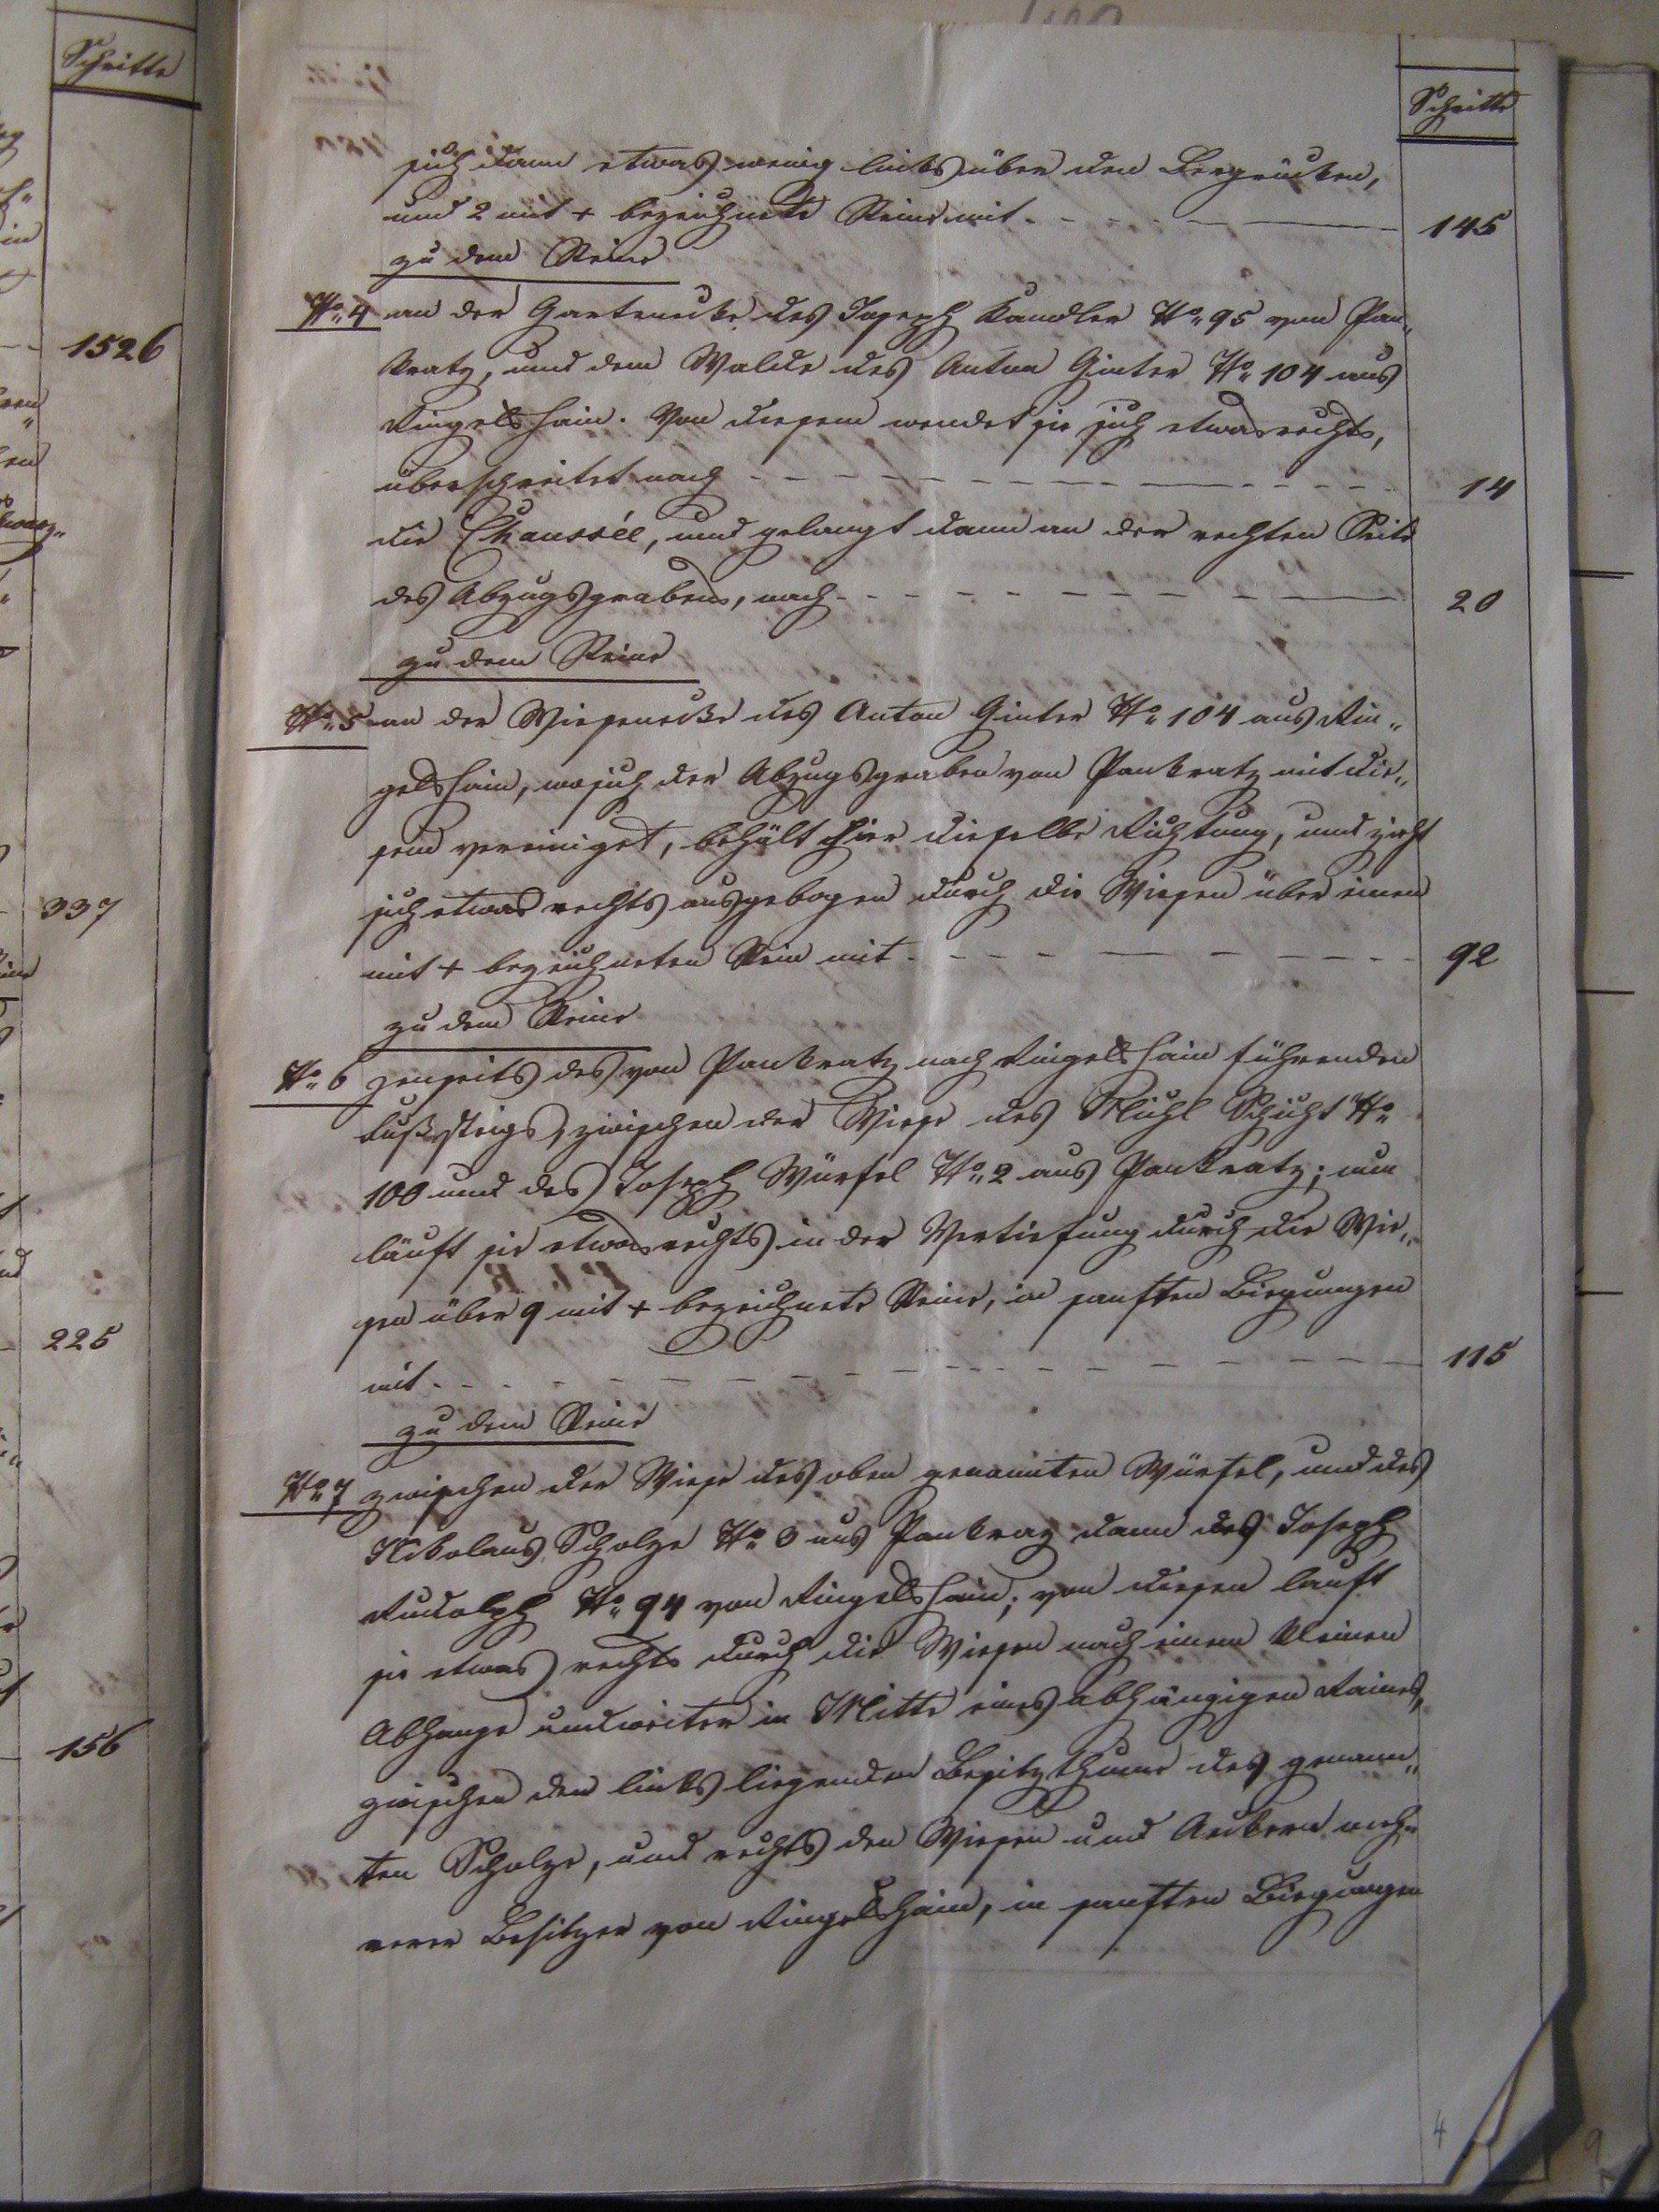 Schritte
1526
337
225
156
Schritte
sich dann etwas wenig links über den Bergrücken,
und 2 mit + bezeichnete Steine mit 145
zu dem Steine
No. 4 an der Gartenecke des Joseph Kandler No. 95 von Pan„
kratz, und dem Walde des Anton Ginter No. 104 aus
Ringelshain. Von diesem wendet sie sich etwas rechts,
überschreitet nach 14
die Chaussée, und gelangt dann an der rechten Seite
des Abzugsgrabens, nach 20
zu dem Steine
No. 5 an der Wiesenecke des Anton Ginter No. 104 aus Rin„
gelshain, wo sich der Abzugsgraben von Pankratz mit die„
sem vereiniget, behält hier dieselbe Richtung, und zieht
sich etwas rechts ausgebogen durch die Wiesen über einen
mit + bezeichneten Stein mit 92
zu dem Steine
No. 6 jenseits des von Pankratz nach Ringelshain führenden
Fußsteigs, zwischen der Wiese des Schicht No.
100 und des Joseph Würfel No. 2 aus Pankratz; nun
läuft sie etwas rechts in der Vertiefung durch die Wie„
sen über 9 mit + bezeichnete Steine, in sanften Biegungen
mit 115
zu dem Steine
No. 7 zwischen der Wiese des oben genannten Würfel, und des
Nikolaus Scholze No. 3 aus Pankraz dann des Joseph
Rudolph No. 94 von Ringelshain; von diesen lauft
sie etwas rechts durch die Wiesen nach einem kleinen
Abhange und weiter in Mitte eines abhängigen Raines,
zwischen den links liegenden Besitzthume des genann„
ten Scholze, und rechts den Wiesen und Aeckern meh„
rerer Besitzer von Ringelshain, in sanften Biegungen
4
9